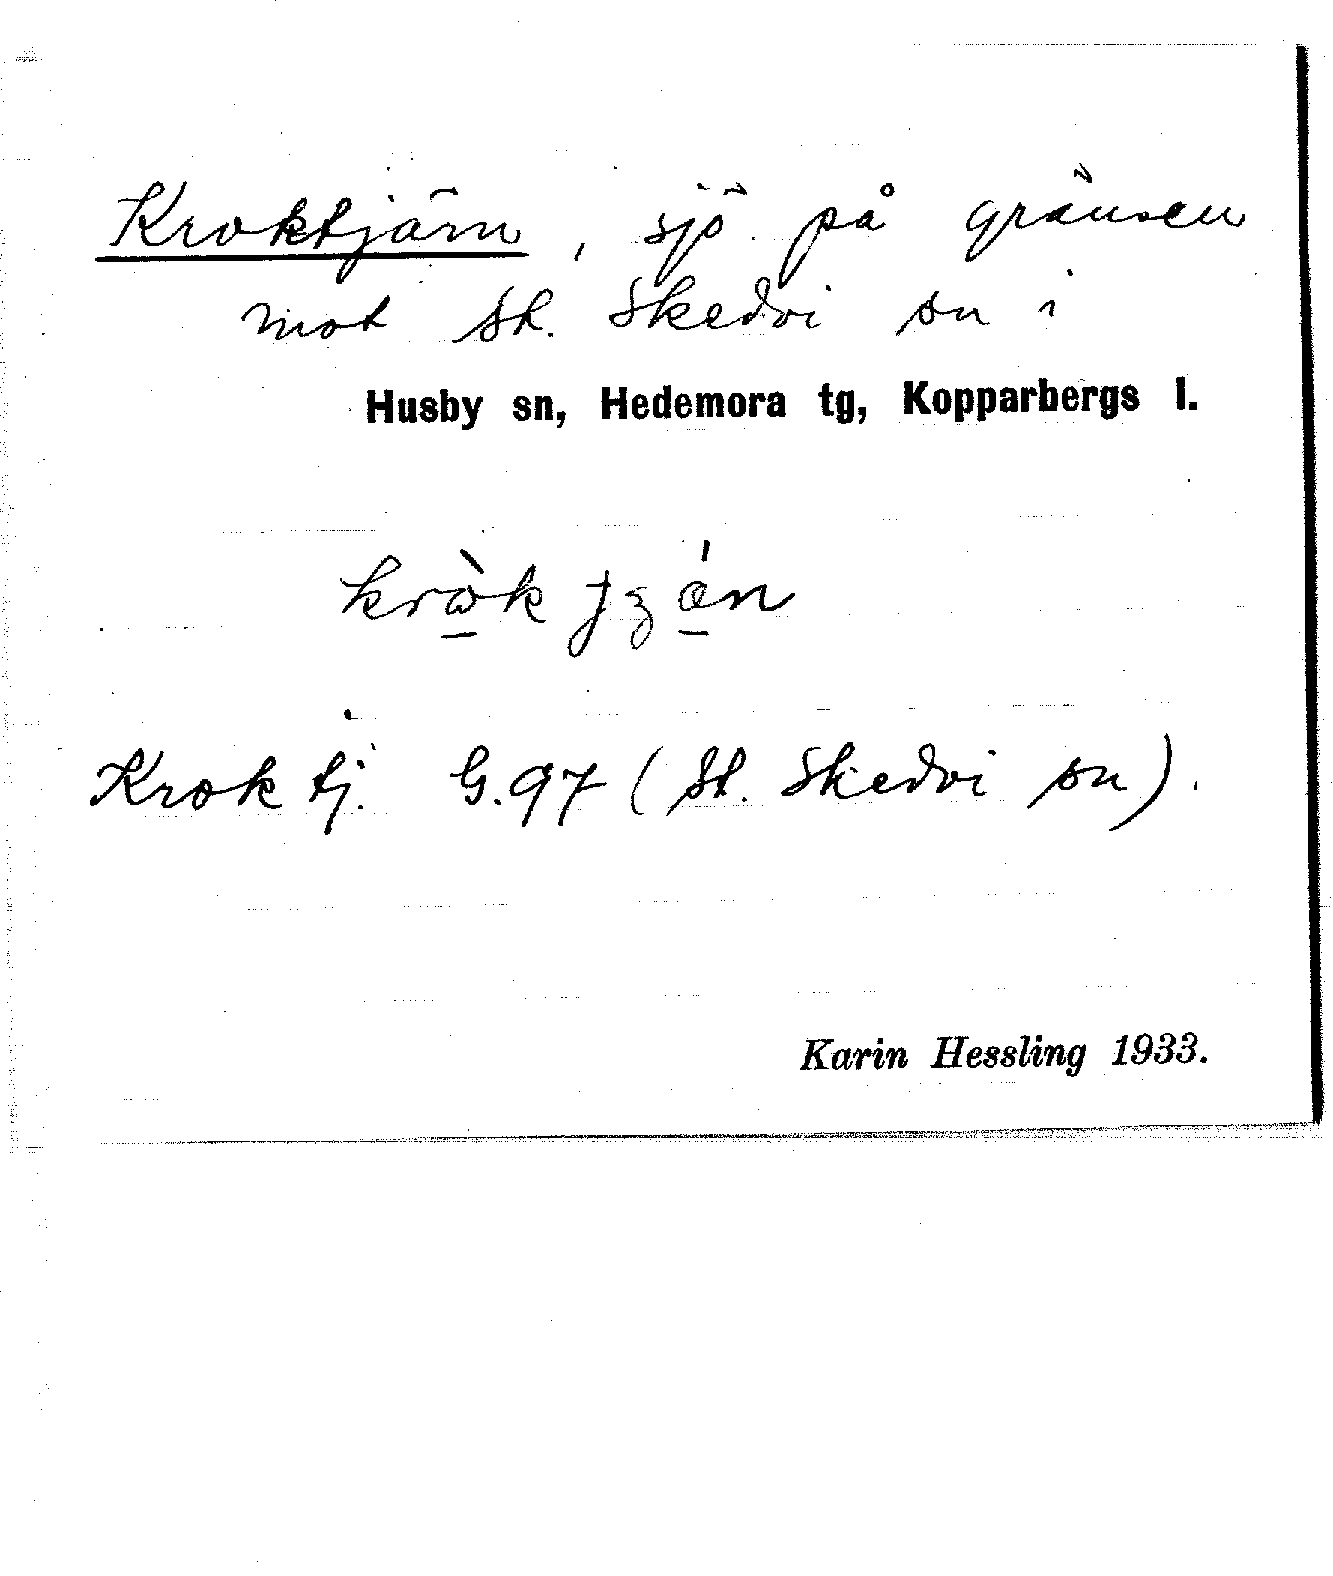 Kroktjärn, sjö på gränsen
mot St. Skedvi sn i
Husby sn, Hedemora tg, Kopparbergs l.
Krok tj. G.97 (St. Skedvi sn).
Karin Hessling 1933.